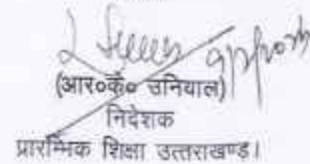 (आर०के० उनियाल)
निदेशक
प्रारम्भिक शिक्षा उत्तराखण्ड।